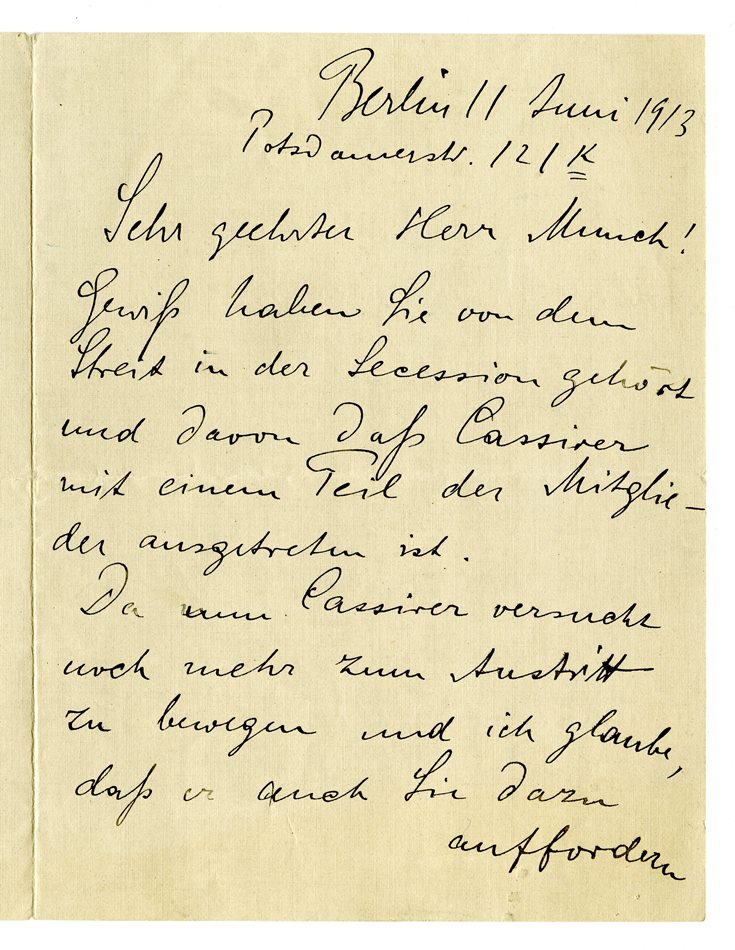 Berlin 11 Juni 1913
Potsdamerstr. 121 K
Sehr geehrter Herr Munch!
Gewiß haben Sie von dem
Streit in der Secession gehört
und davon daß Cassirer
mit einem Teil der Mitglie-
der ausgetreten ist.
Da nun Cassirer versucht
noch mehr zum Austritt
zu bewegen und ich glaube,
daß er auch Sie dazu
auffordern